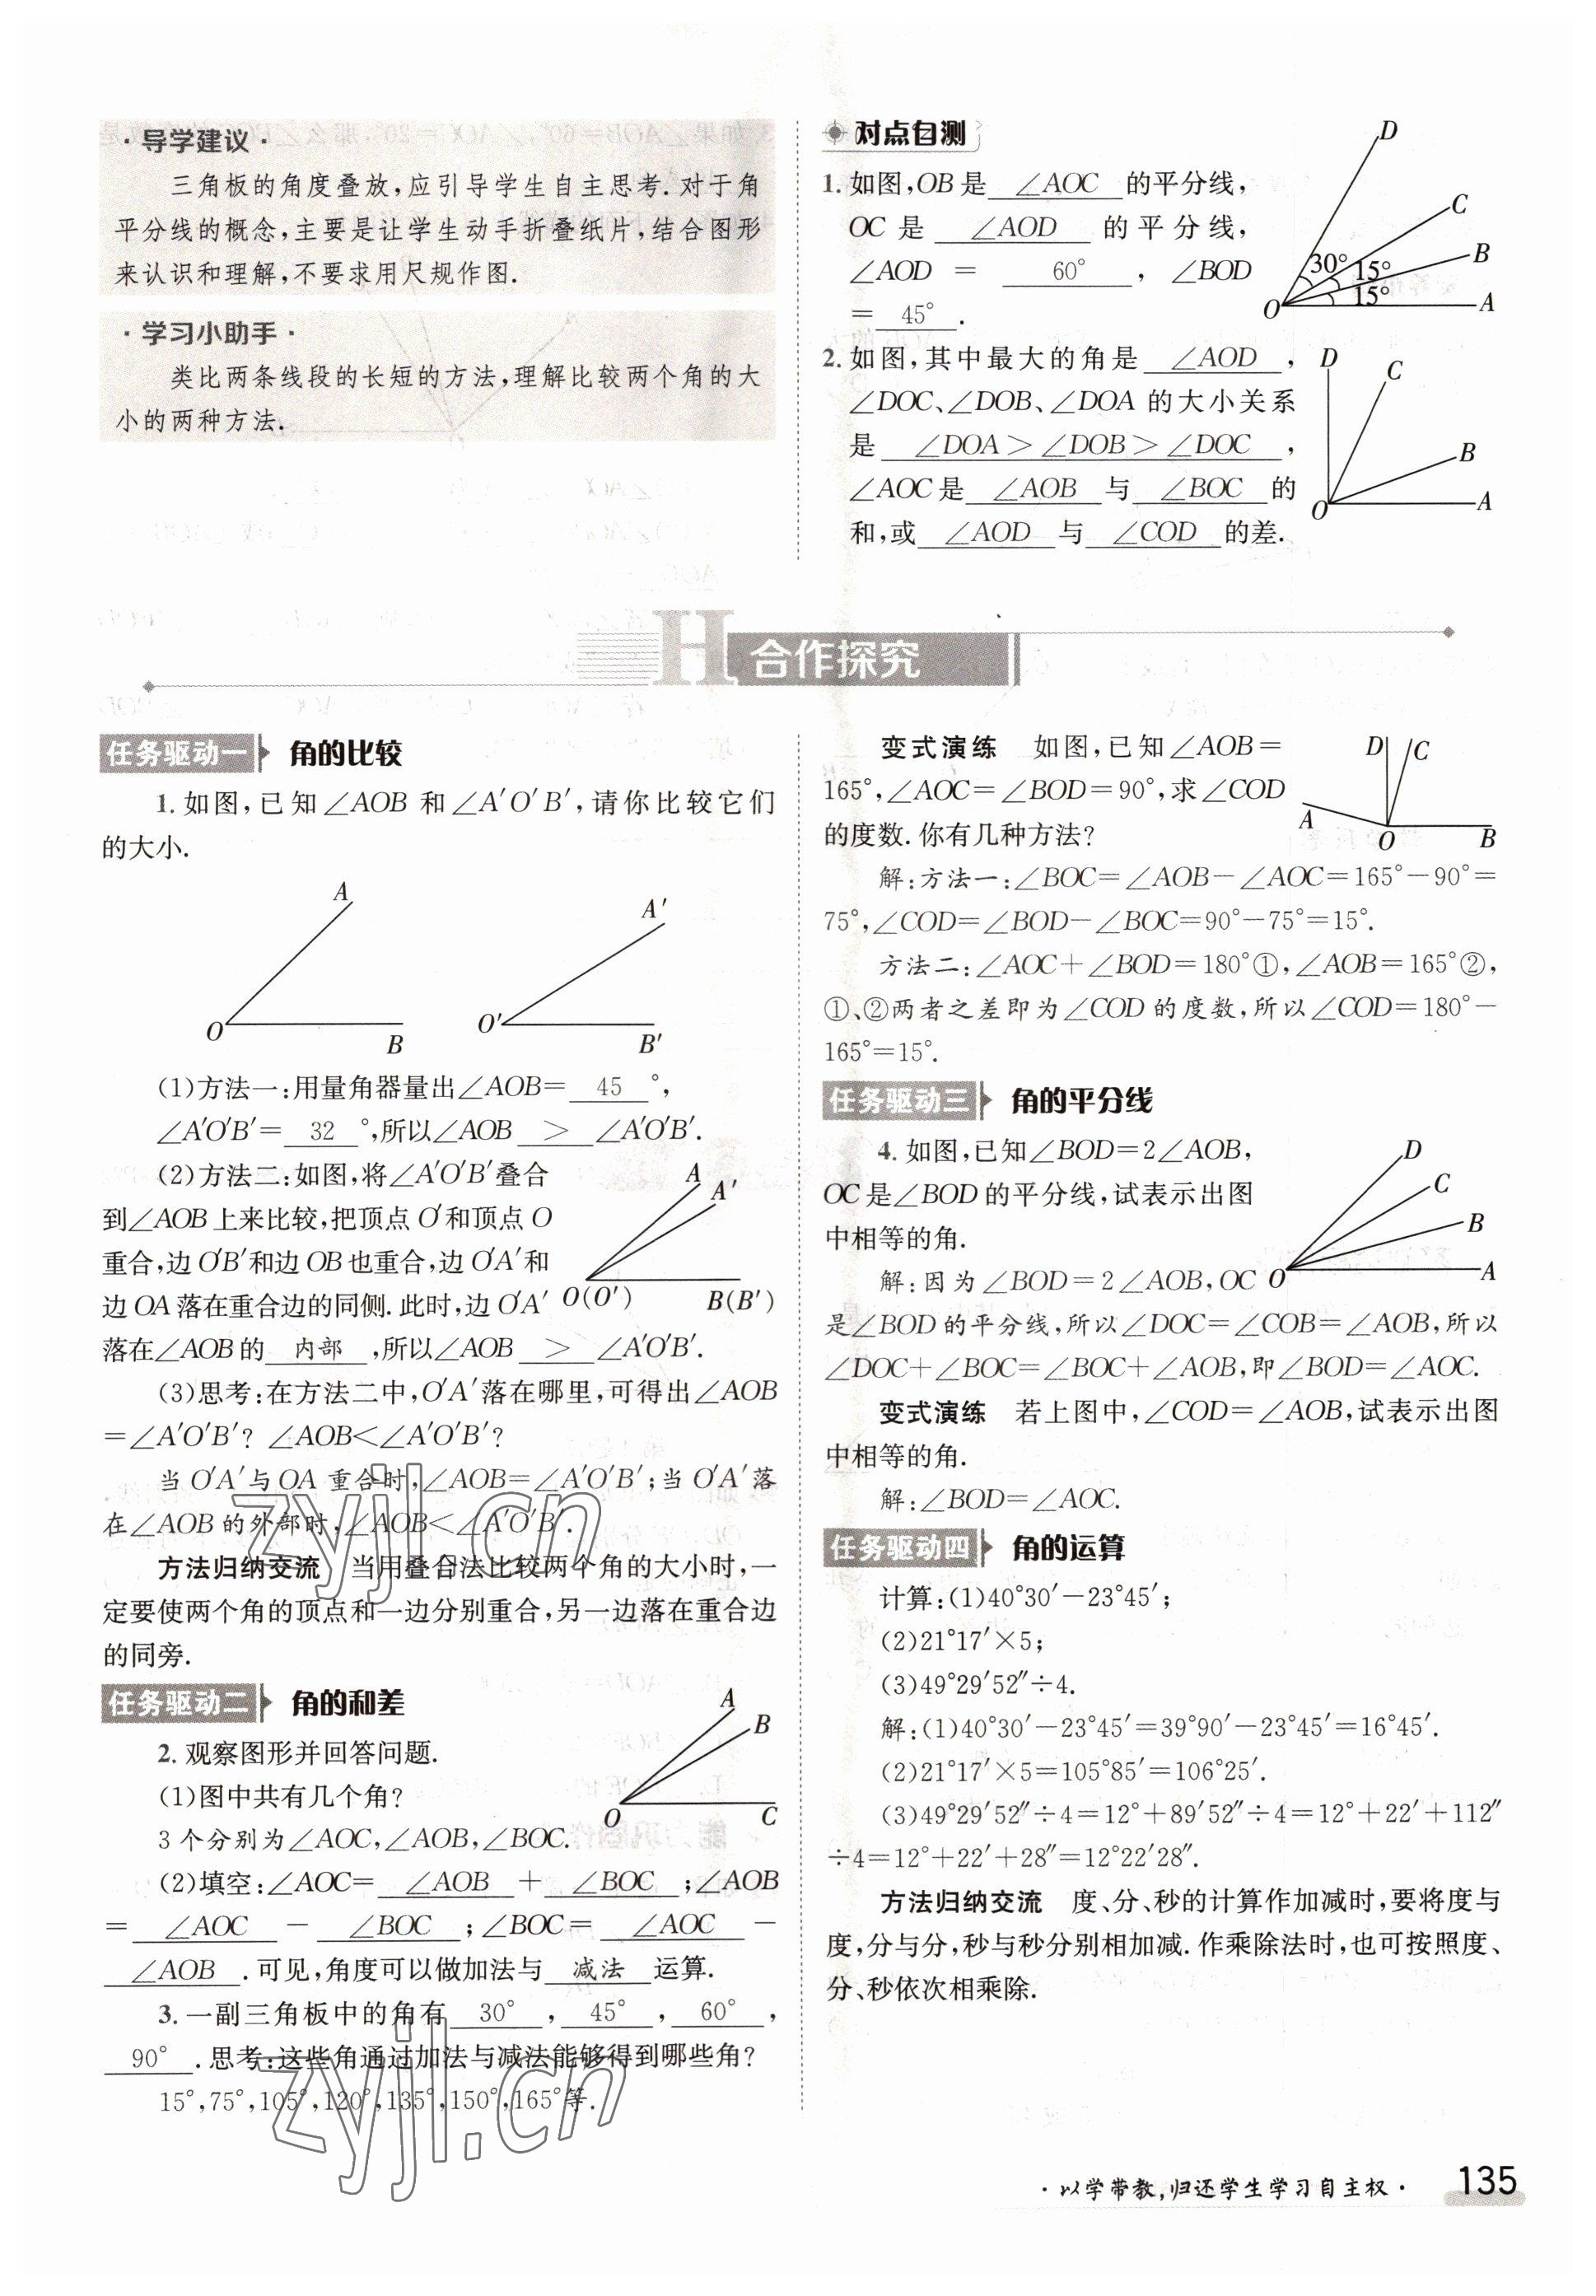 · 导学建议 ·
三角板的角度叠放,应引导学生自主思考. 对于角
平分线的概念,主要是让学生动手折叠纸片,结合图形
来认识和理解,不要求用尺规作图.
· 学习小助手 ·
类比两条线段的长短的方法,理解比较两个角的大
小的两种方法.
对点自测
1. 如图,OB 是 ∠AOC 的平分线,
OC 是 ∠AOD 的平分线,
∠AOD = 60° , ∠BOD
= 45° .
D
C
B
A
O
30°
15°
15°
2. 如图,其中最大的角是 ∠AOD ,
∠DOC、∠DOB、∠DOA 的大小关系
是 ∠DOA＞∠DOB＞∠DOC ,
∠AOC是 ∠AOB 与 ∠BOC 的
和,或 ∠AOD 与 ∠COD 的差.
D
C
B
A
O
H 合作探究
任务驱动一 角的比较
1. 如图,已知∠AOB 和∠A′O′B′,请你比较它们
的大小.
A
O
B
A′
O′
B′
(1)方法一:用量角器量出∠AOB= 45 °,
∠A′O′B′= 32 °,所以∠AOB ＞ ∠A′O′B′.
(2)方法二:如图,将∠A′O′B′叠合
到∠AOB 上来比较,把顶点 O′和顶点 O
重合,边 O′B′和边 OB 也重合,边 O′A′和
边 OA 落在重合边的同侧. 此时,边 O′A′
落在∠AOB 的 内部 ,所以∠AOB ＞ ∠A′O′B′.
A
A′
O(O′)
B(B′)
(3)思考:在方法二中,O′A′落在哪里,可得出∠AOB
=∠A′O′B′? ∠AOB＜∠A′O′B′?
当 O′A′与 OA 重合时,∠AOB=∠A′O′B′;当 O′A′落
在∠AOB 的外部时,∠AOB＜∠A′O′B′.
方法归纳交流 当用叠合法比较两个角的大小时,一
定要使两个角的顶点和一边分别重合,另一边落在重合边
的同旁.
任务驱动二 角的和差
2. 观察图形并回答问题.
(1)图中共有几个角?
3 个分别为∠AOC,∠AOB,∠BOC.
A
B
O
C
(2)填空:∠AOC= ∠AOB + ∠BOC ;∠AOB
= ∠AOC － ∠BOC ;∠BOC= ∠AOC －
∠AOB .可见,角度可以做加法与 减法 运算.
3. 一副三角板中的角有 30° , 45° , 60° ,
90° .思考:这些角通过加法与减法能够得到哪些角?
15°,75°,105°,120°,135°,150°,165°等.
变式演练 如图,已知∠AOB=
165°,∠AOC=∠BOD=90°,求∠COD
的度数. 你有几种方法?
D
C
A
O
B
解:方法一:∠BOC=∠AOB－∠AOC=165°－90°=
75°,∠COD=∠BOD－∠BOC=90°－75°=15°.
方法二:∠AOC＋∠BOD=180°①,∠AOB=165°②,
①、②两者之差即为∠COD 的度数,所以∠COD=180°－
165°=15°.
任务驱动三 角的平分线
4. 如图,已知∠BOD=2∠AOB,
OC是∠BOD 的平分线,试表示出图
中相等的角.
D
C
B
A
O
解:因为∠BOD=2∠AOB,OC
是∠BOD 的平分线,所以∠DOC=∠COB=∠AOB,所以
∠DOC＋∠BOC=∠BOC＋∠AOB,即∠BOD=∠AOC.
变式演练 若上图中,∠COD=∠AOB,试表示出图
中相等的角.
解:∠BOD=∠AOC.
任务驱动四 角的运算
计算:(1)40°30′－23°45′;
(2)21°17′×5;
(3)49°29′52″÷4.
解:(1)40°30′－23°45′=39°90′－23°45′=16°45′.
(2)21°17′×5=105°85′=106°25′.
(3)49°29′52″÷4=12°＋89′52″÷4=12°＋22′＋112″
÷4=12°＋22′＋28″=12°22′28″.
方法归纳交流 度、分、秒的计算作加减时,要将度与
度,分与分,秒与秒分别相加减. 作乘除法时,也可按照度、
分、秒依次相乘除.
zyjl.cn
zyjl.cn
· 以学带教,归还学生学习自主权 ·
135